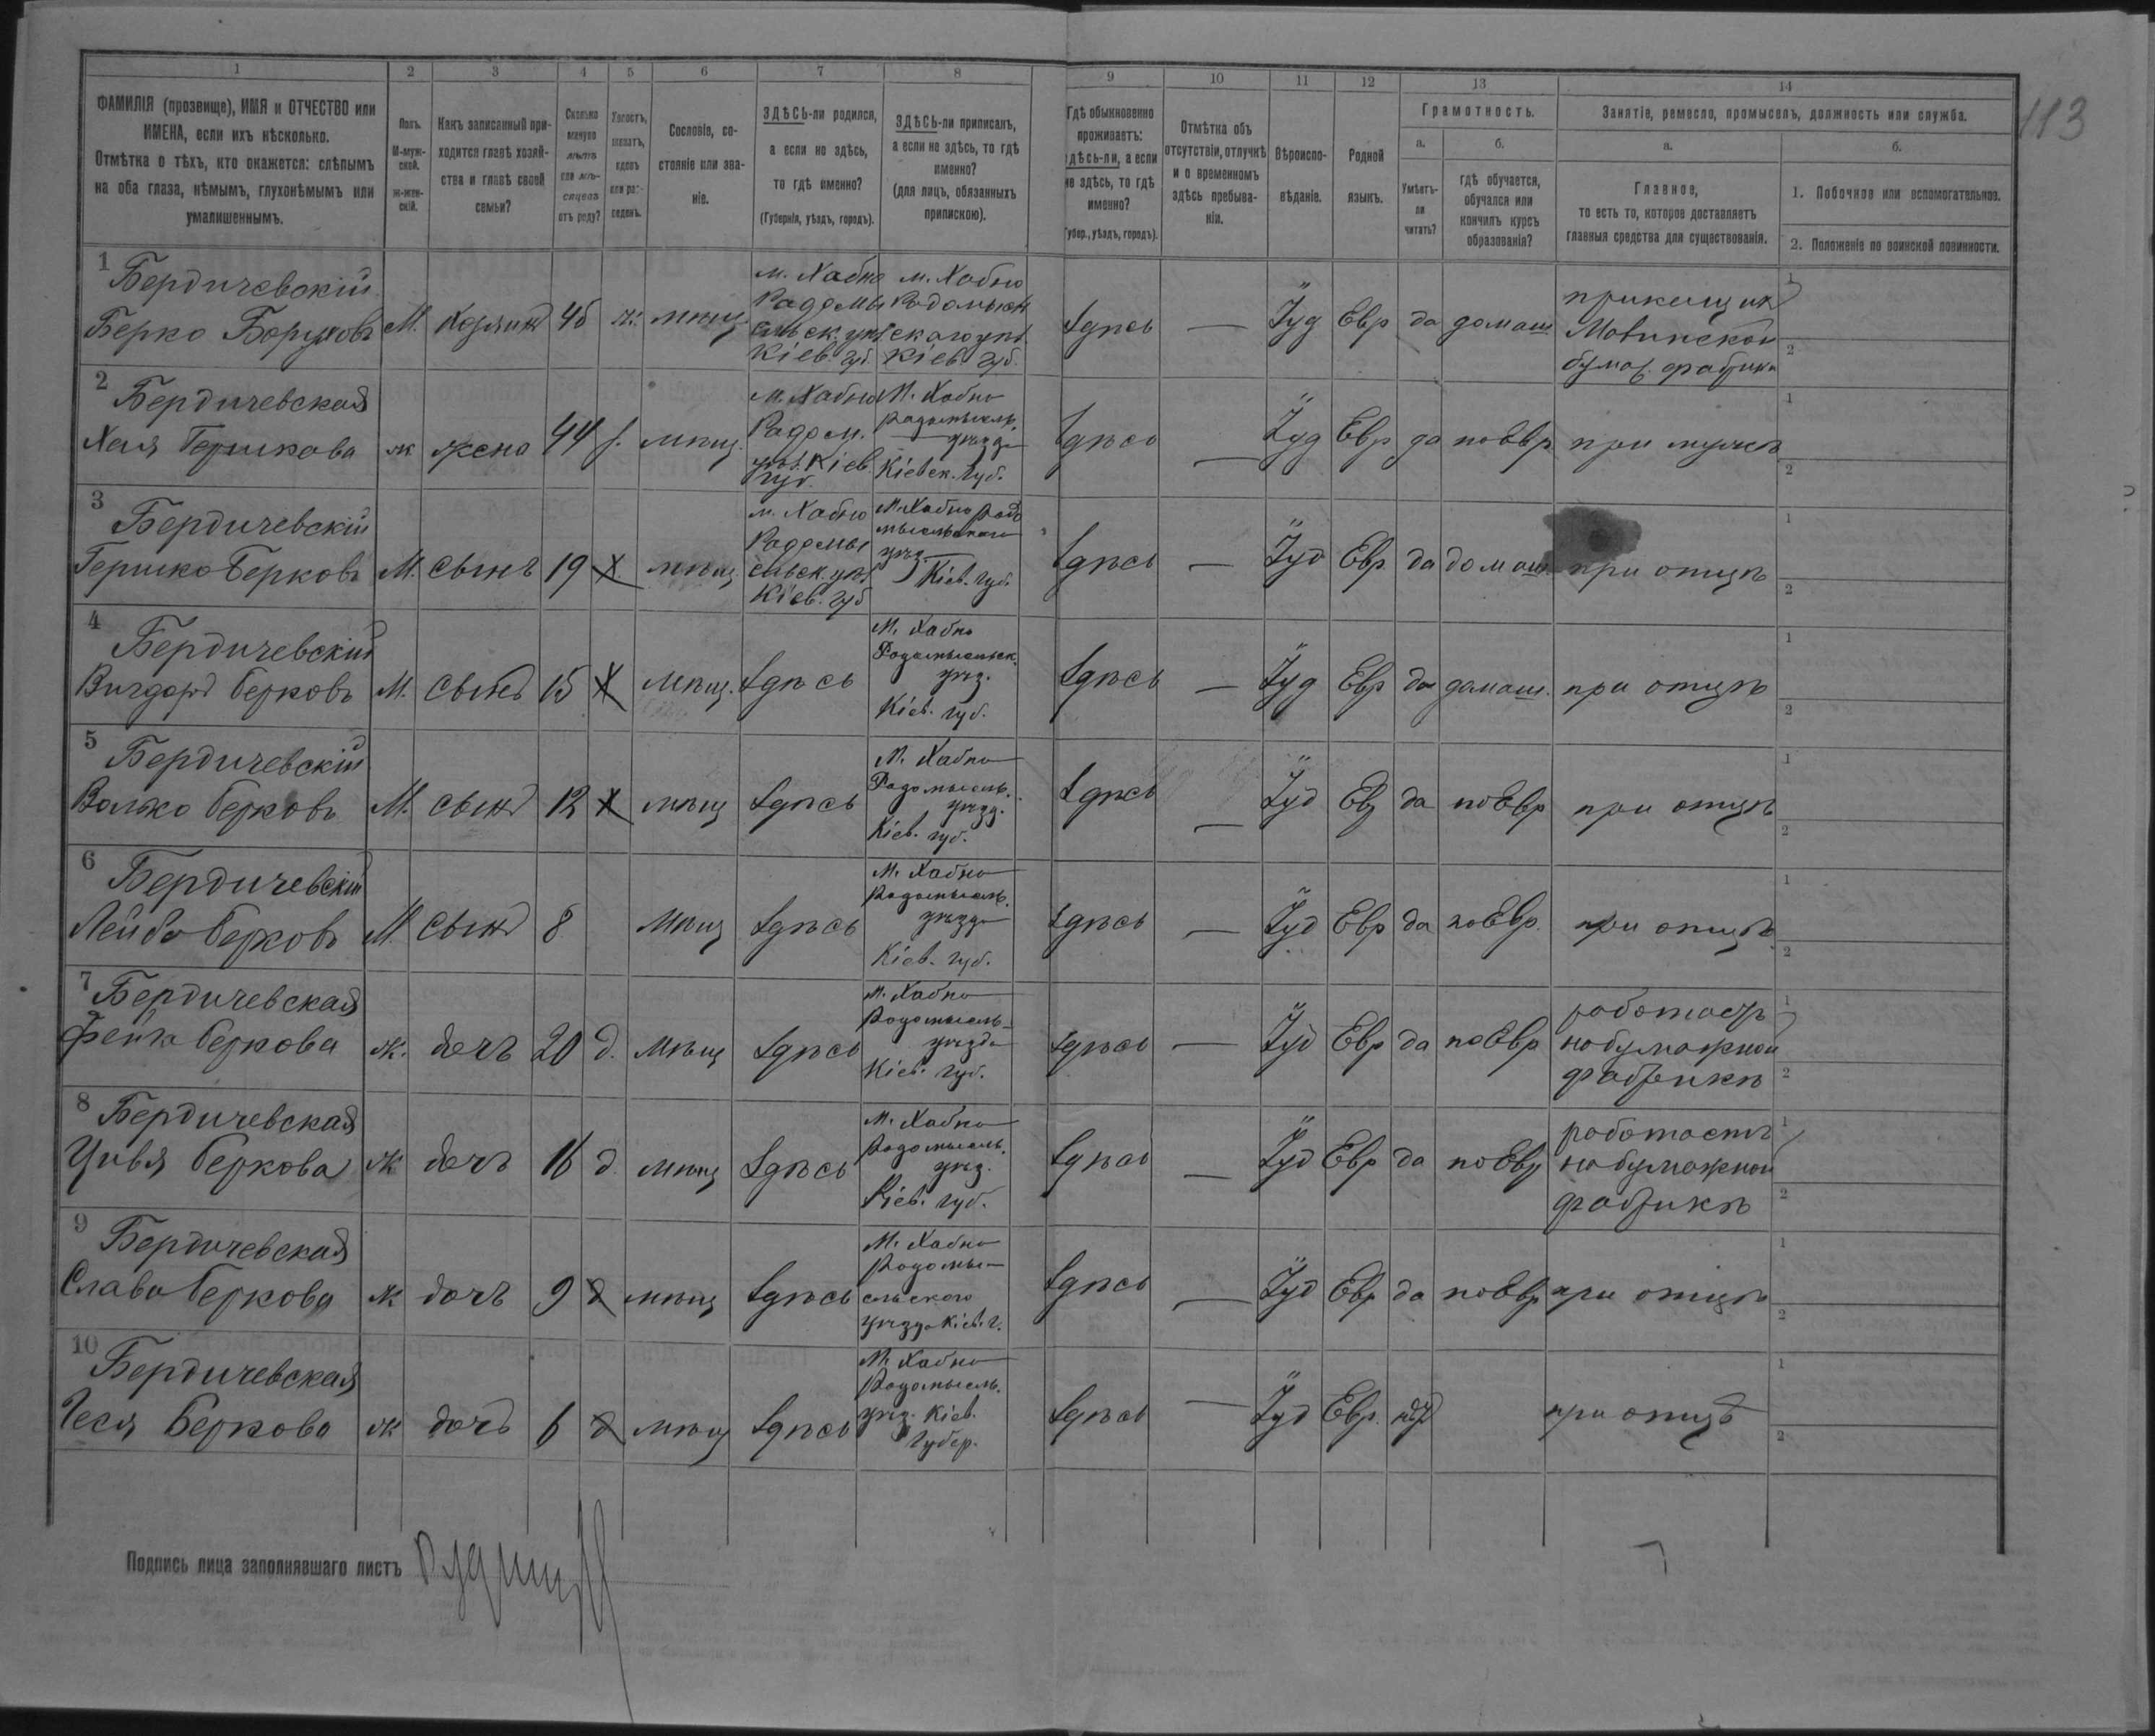 113
1 2 3 4 5 6 7 8 9 10 11 12 13 14
ФАМИЛІЯ (прозвище), ИМЯ и ОТЧЕСТВО или
ИМЕНА, если ихъ нѣсколько.
Отмѣтка о тѣхъ, кто окажется: слѣпымъ
на оба глаза, нѣмымъ, глухонѣмымъ или
умалишеннымъ.
Полъ.
М-мужской.
Ж-женскій.
Какъ записанный при-
ходится главѣ хозяй-
ства и главѣ своей
семьи?
Сколько
минуло
лѣтъ
или мѣ-
сяцевъ
отъ роду?
Холостъ,
женатъ,
вдовъ
или раз-
веденъ.
Сословіе, со-
стояніе или зва-
ніе.
ЗДѢСЬ-ли родился,
а если не здѣсь,
то гдѣ именно?
(Губернія, уѣздъ, городъ).
ЗДѢСЬ-ли приписанъ,
а если не здѣсь, то гдѣ
именно?
(для лицъ, обязанныхъ
припискою).
Гдѣ обыкновенно
проживаетъ:
здѣсь-ли, а если
не здѣсь, то гдѣ
именно?
(Губер., уѣздъ, городъ).
Отмѣтка объ
отсутствіи, отлучкѣ
и о временномъ
здѣсь пребыва-
ніи.
Вѣроиспо-
вѣданіе.
Родной
языкъ.
Грамотность.
а.
Умѣетъ-
ли
читать?
б.
гдѣ обучается,
обучался или
кончилъ курсъ
образованія?
Занятіе, ремесло, промыселъ, должность или служба.
а.
Главное,
то есть то, которое доставляетъ
главныя средства для существованія.
б.
1. Побочное или вспомогательное.
2. Положеніе по воинской повинности.
1 Бердичевскій
Берко Боруховъ М. Хозяинъ 46 ж. мѣщ.
м. Хабно
Радомы
сльск. уѣз.
Кіев. губ.
м. Хабно
Радомысл
скаго уѣз.
Кіев. губ.
Здѣсь — Іуд Евр да домаш
прикащик
бумаж. фабрики
1
2
2 Бердичевская
Хая Гершкова ж жена 44 мѣщ.
м. Хабно
Радом.
уѣз. Кіев
губ.
М. Хабно
Радомысль.
уѣзда
Кіевск. губ.
Здѣсь — Іуд Евр да поЕвр при мужѣ
1
2
3 Бердичевскій
Гершко Берковъ М. сынъ 19 х мѣщ.
м. Хабно
Радомы
сльск. уѣз
Кіев. губ
М. Хабно Радо
мысльскаго
уѣзд.
Кіев. губ.
Здѣсь — Іуд Евр. да домаш. при отцѣ
1
2
4 Бердичевскій
Вигдоръ Берковъ М. сынъ 15 х мѣщ. Здѣсь
М. Хабно
Радомысльск.
уѣз.
Кіев. губ.
Здѣсь — Іуд Евр да домаш. при отцѣ
1
2
5 Бердичевскій
Волько Берковъ М. сынъ 12 х мѣщ Здѣсь
М. Хабно
Радомысль.
уѣзд.
Кіев. губ.
Здѣсь — Іуд Евр да поЕвр при отцѣ
1
2
6 Бердичевскій
Лейба Берковъ М. сынъ 8 мѣщ Здѣсь
М. Хабно
Радомысль.
уѣзда
Кіев. губ.
Здѣсь — Іуд Евр да поЕвр. при отцѣ
1
2
7 Бердичевская
Фейга Беркова ж. дочь 20 д. мѣщ Здѣсь
М. Хабно
Радомысль-
уѣзда
Кіев. губ.
Здѣсь — Іуд Евр да поЕвр
работаетъ
на бумажной
фабрикѣ
1
2
8 Бердичевская
Цивя Беркова ж дочь 16 д. мѣщ Здѣсь
М. Хабно
Радомысль.
уѣз.
Кіев. губ.
Здѣсь — Іуд Евр да поЕвр
работаетъ
на бумажной
фабрикѣ
1
2
9 Бердичевская
Слава Беркова ж дочь 9 д мѣщ Здѣсь
М. Хабно
Радомы-
сльского
уѣзда Кіев. г.
Здѣсь — Іуд Евр да поЕвр при отцѣ
1
2
10 Бердичевская
Беркова ж дочь 6 д мѣщ Здѣсь
М. Хабно
Радомысль.
уѣз. Кіев.
Губер.
Здѣсь — Іуд Евр. при отцѣ
1
2
Подпись лица заполнявшаго листъ